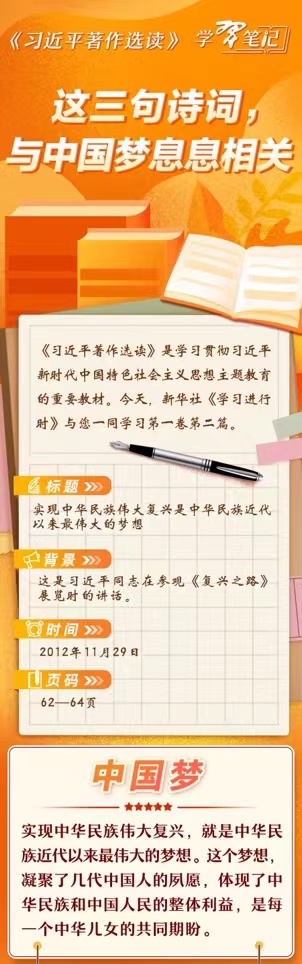 《习近平著作选读》 学习笔记
这三句诗词，
与中国梦息息相关
《习近平著作选读》是学习贯彻习近平
新时代中国特色社会主义思想主题教育
的重要教材。今天，新华社《学习进行
时》与您一同学习第一卷第二篇。
标题
实现中华民族伟大复兴是中华民族近代
以来最伟大的梦想
背景
这是习近平同志在参观《复兴之路》
展览时的讲话。
时间
2012年11月29日
页码
62—64页
中国梦
实现中华民族伟大复兴，就是中华民
族近代以来最伟大的梦想。这个梦想，
凝聚了几代中国人的夙愿，体现了中
华民族和中国人民的整体利益，是每
一个中华儿女的共同期盼。